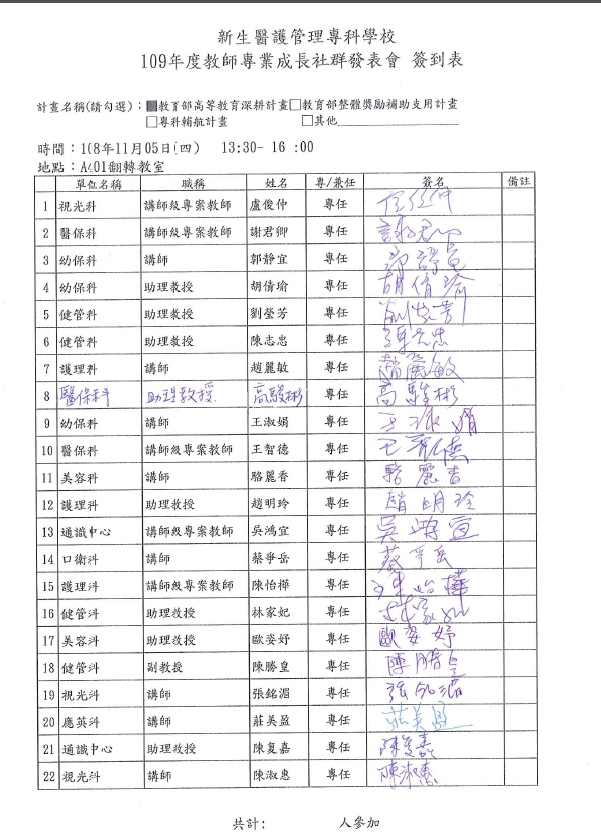 新生醫護管理專科學校
109年度教師專業成長社群發表會 簽到表
計畫名稱(請勾選)：■教育部高等教育深耕計畫□教育部整體獎勵補助支用計畫
□專科輔航計畫 □其他
時間：108年11月05日(四) 13:30- 16 :00
地點：A401翻轉教室
單位名稱 職稱 姓名 專/兼任 簽名 備註
1 視光科 講師級專案教師 盧俊仲 專任
2 醫保科 講師級專案教師 謝君卿 專任
3 幼保科 講師 郭靜宜 專任
4 幼保科 助理教授 胡倩瑜 專任 胡倩瑜
5 健管科 助理教授 劉瑩芳 專任
6 健管科 助理教授 陳志忠 專任 陳志忠
7 護理科 講師 趙麗敏 專任 趙麗敏
8 醫保科 助理教授 高駿彬 專任 高駿彬
9 幼保科 講師 王淑娟 專任 王淑娟
10 醫保科 講師級專案教師 王智德 專任
11 美容科 講師 駱麗香 專任 駱麗香
12 護理科 助理教授 趙明玲 專任 趙明玲
13 通識中心 講師級專案教師 吳鴻宜 專任 吳鴻宜
14 口衛科 講師 蔡爭岳 專任 蔡爭岳
15 護理科 講師級專案教師 陳怡樺 專任 陳怡樺
16 健管科 助理教授 林家妃 專任
17 美容科 助理教授 歐姿妤 專任 歐姿妤
18 健管科 副教授 陳勝皇 專任 陳勝皇
19 視光科 講師 張銘湄 專任
20 應英科 講師 莊美盈 專任 莊美盈
21 通識中心 助理教授 陳复嘉 專任 陳复嘉
22 視光科 講師 陳淑惠 專任 陳淑惠
共計： 人參加